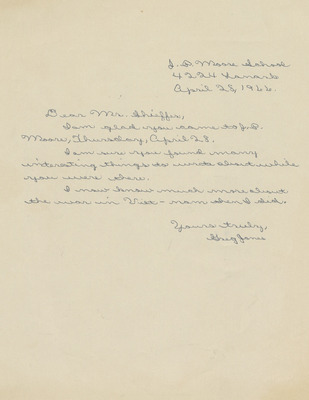 J. D. Moore School
4224 Lanark
April 28, 1966.
Dear Mr. Sheiffes,
I am glad you came to J.D.
Moore, Thursday, April 28.
I am sure you found many
interesting things to wrote about while
you were there.
I now know much more about
the war in Viet-nam then I did.
Yours truly,
Greg Jones